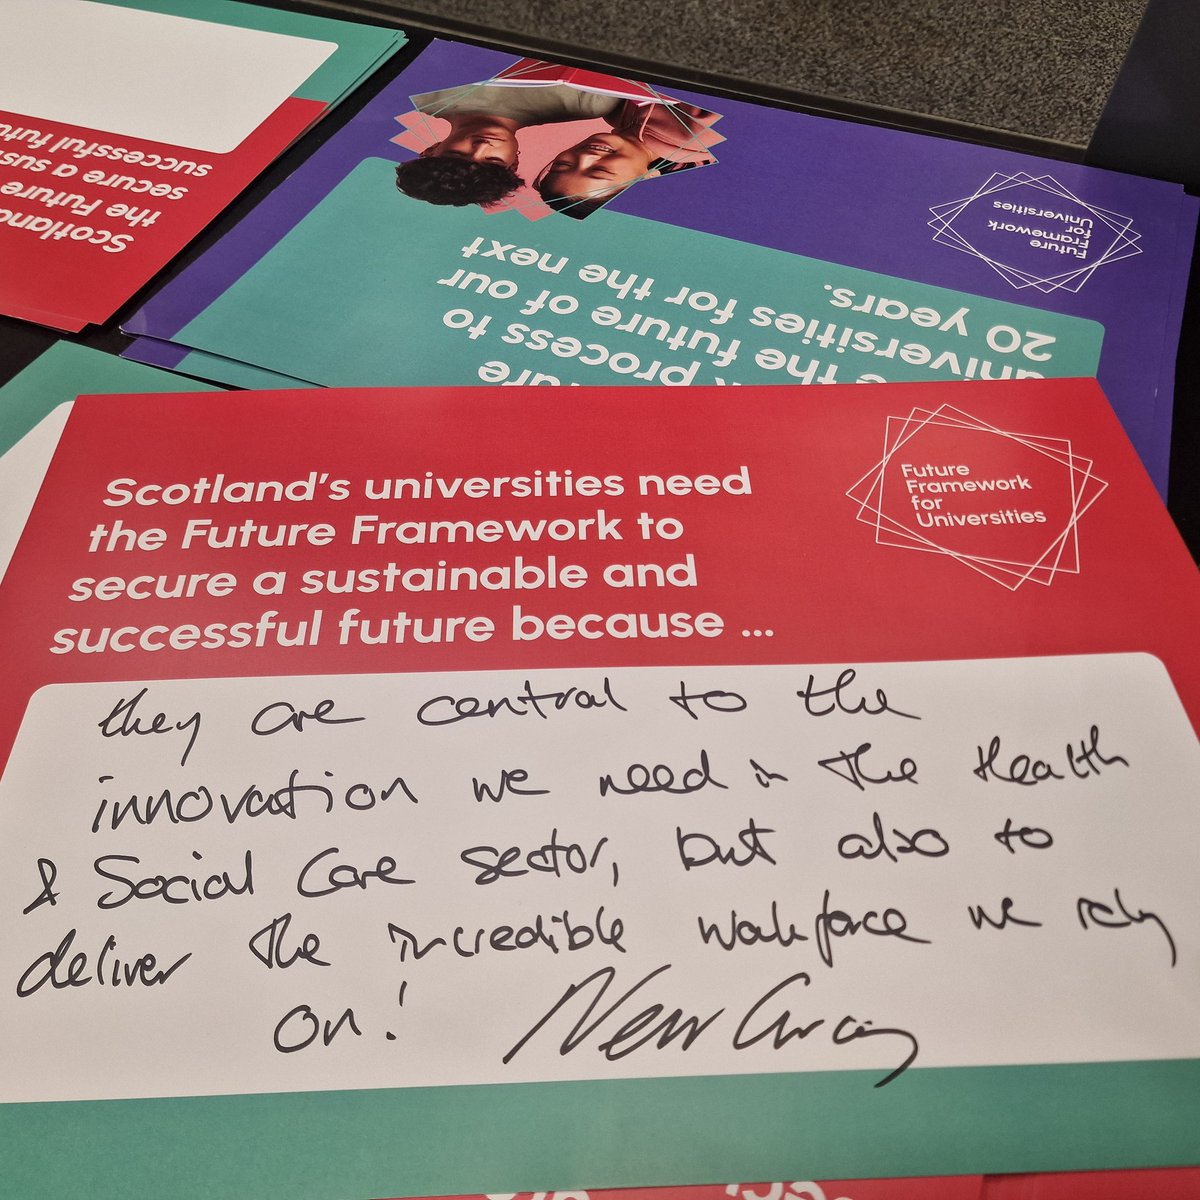 Scotland's universities need
the Future Framework to
secure a sustainable and
successful future because ...
Future
Framework
for
Universities
they are central to the
innovation we need in the Health
& Social Care sector, but also to
deliver the incredible workforce we rely
on! Neil Gray
Future
Framework
for
Universities
process to
the future of our
universities for the next
20 years.
Scotland
the Future
secure a sus
successful futu